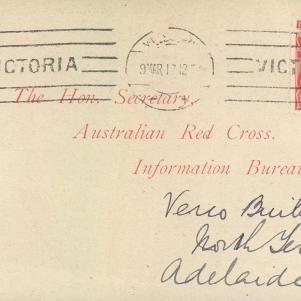 ICTORIA
9 MAR 17 12
VICT
The Hon. Secretary,
Australian Red Cross.
Information Burea
Verco Buil
North Te
Adelaide